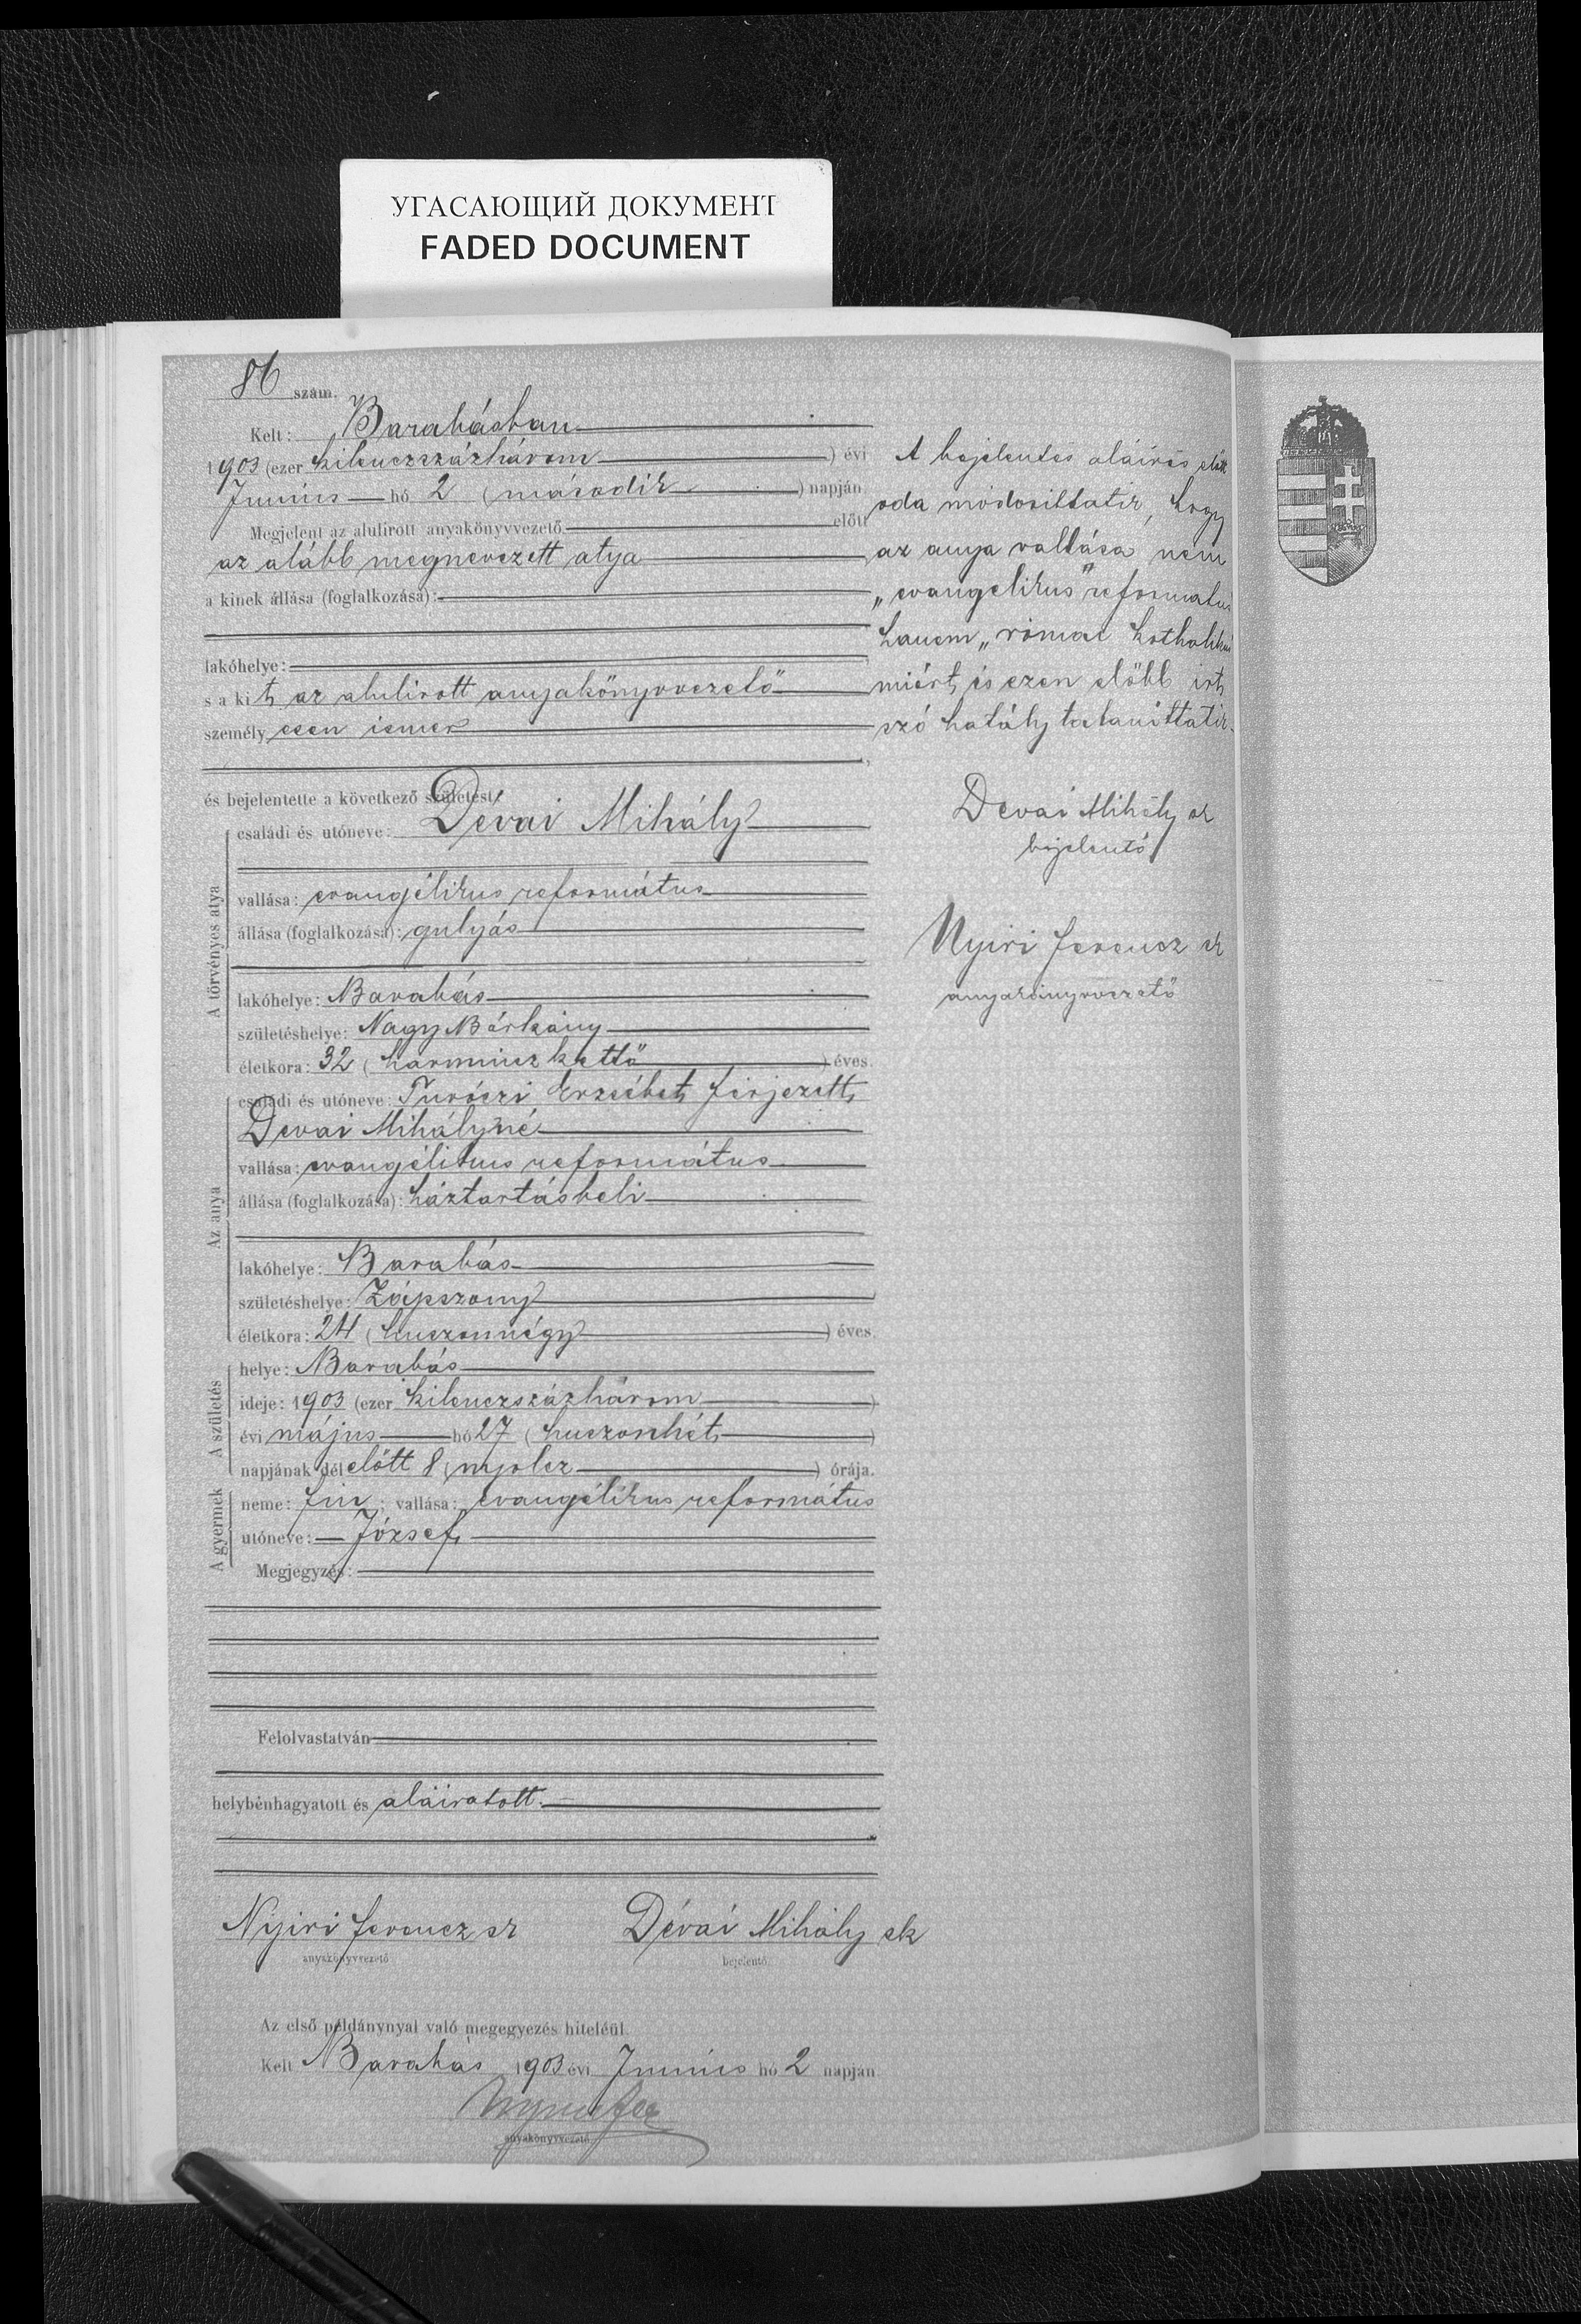 УГАСАЮЩИЙ ДОКУМЕНТ
FADED DOCUMENT
86 szám.
Kelt: Barabásban
1903 (ezer kilenczszázhárom ) évi
Junius hó 2 (második ) napján
Megjelent az alulirott anyakönyvvezető előtt
az alább megnevezett atya
a kinek állása (foglalkozása):
lakóhelye:
s a kit az alulirott anyakönyvvezető
személyesen ismer
és bejelentette a következő születést:
A törvényes atya
családi és utóneve: Dévai Mihály
vallása: evangélikus református
állása (foglalkozása): gulyás
lakóhelye: Barabás
születéshelye: Nagy Bárkány
életkora: 32 (harminczkettő ) éves.
Az anya
családi és utóneve: Turóczi Erzsébet férjezett
Devai Mihályné
vallása: evangélikus református
állása (foglalkozása): háztartásbeli
lakóhelye: Barabás
születéshelye: Zápszony
életkora: 24 (huszonnégy ) éves.
A születés
helye: Barabás
ideje: 1903 (ezer kilenczszázhárom )
évi május hó 27 (huszonhét )
napjának délelőtt 8 (nyolcz ) órája.
A gyermek
neme: fiu; vallása: evangélikus református
utóneve: József
Megjegyzés:
Felolvastatván
helybenhagyatott és aláiratott.
Nyiri Ferencz sk
anyakönyvvezető
Dévai Mihály sk
bejelentő.
Az első példánynyal való megegyezés hiteléül.
Kelt Barabás 1903 évi Junius hó 2 napján
anyakönyvvezető
A bejelentés aláirás előtt
oda módosittatik, hogy
az anya vallása nem
„evangelikus" reformatus
hanem „római katholikus
miért is ezen előbb irt
szó hatálytalanittatik.
Devai Mihály sk
bejelentő
Nyiri Ferencz sk
anyakönyvvezető